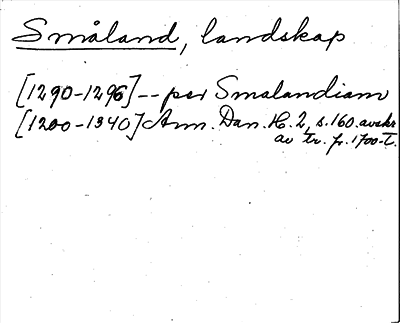 Småland, landskap
[1290-1296] -- per Smalandiam
[1200-1340] Ann. Dan. H. 2, s. 160. avskr
av tr. fr. 1700-t.